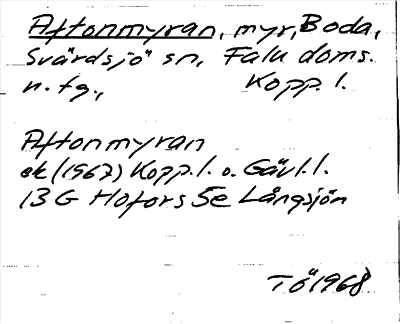 Aftonmyran, myr, Boda,
Svärdsjö sn, Falu doms.
n. tg., Kopp. l.
Aftonmyran
ek (1967) Kopp. l. o. Gävl. l.
13 G Hofors 5e Långsjön
TÖ 1968